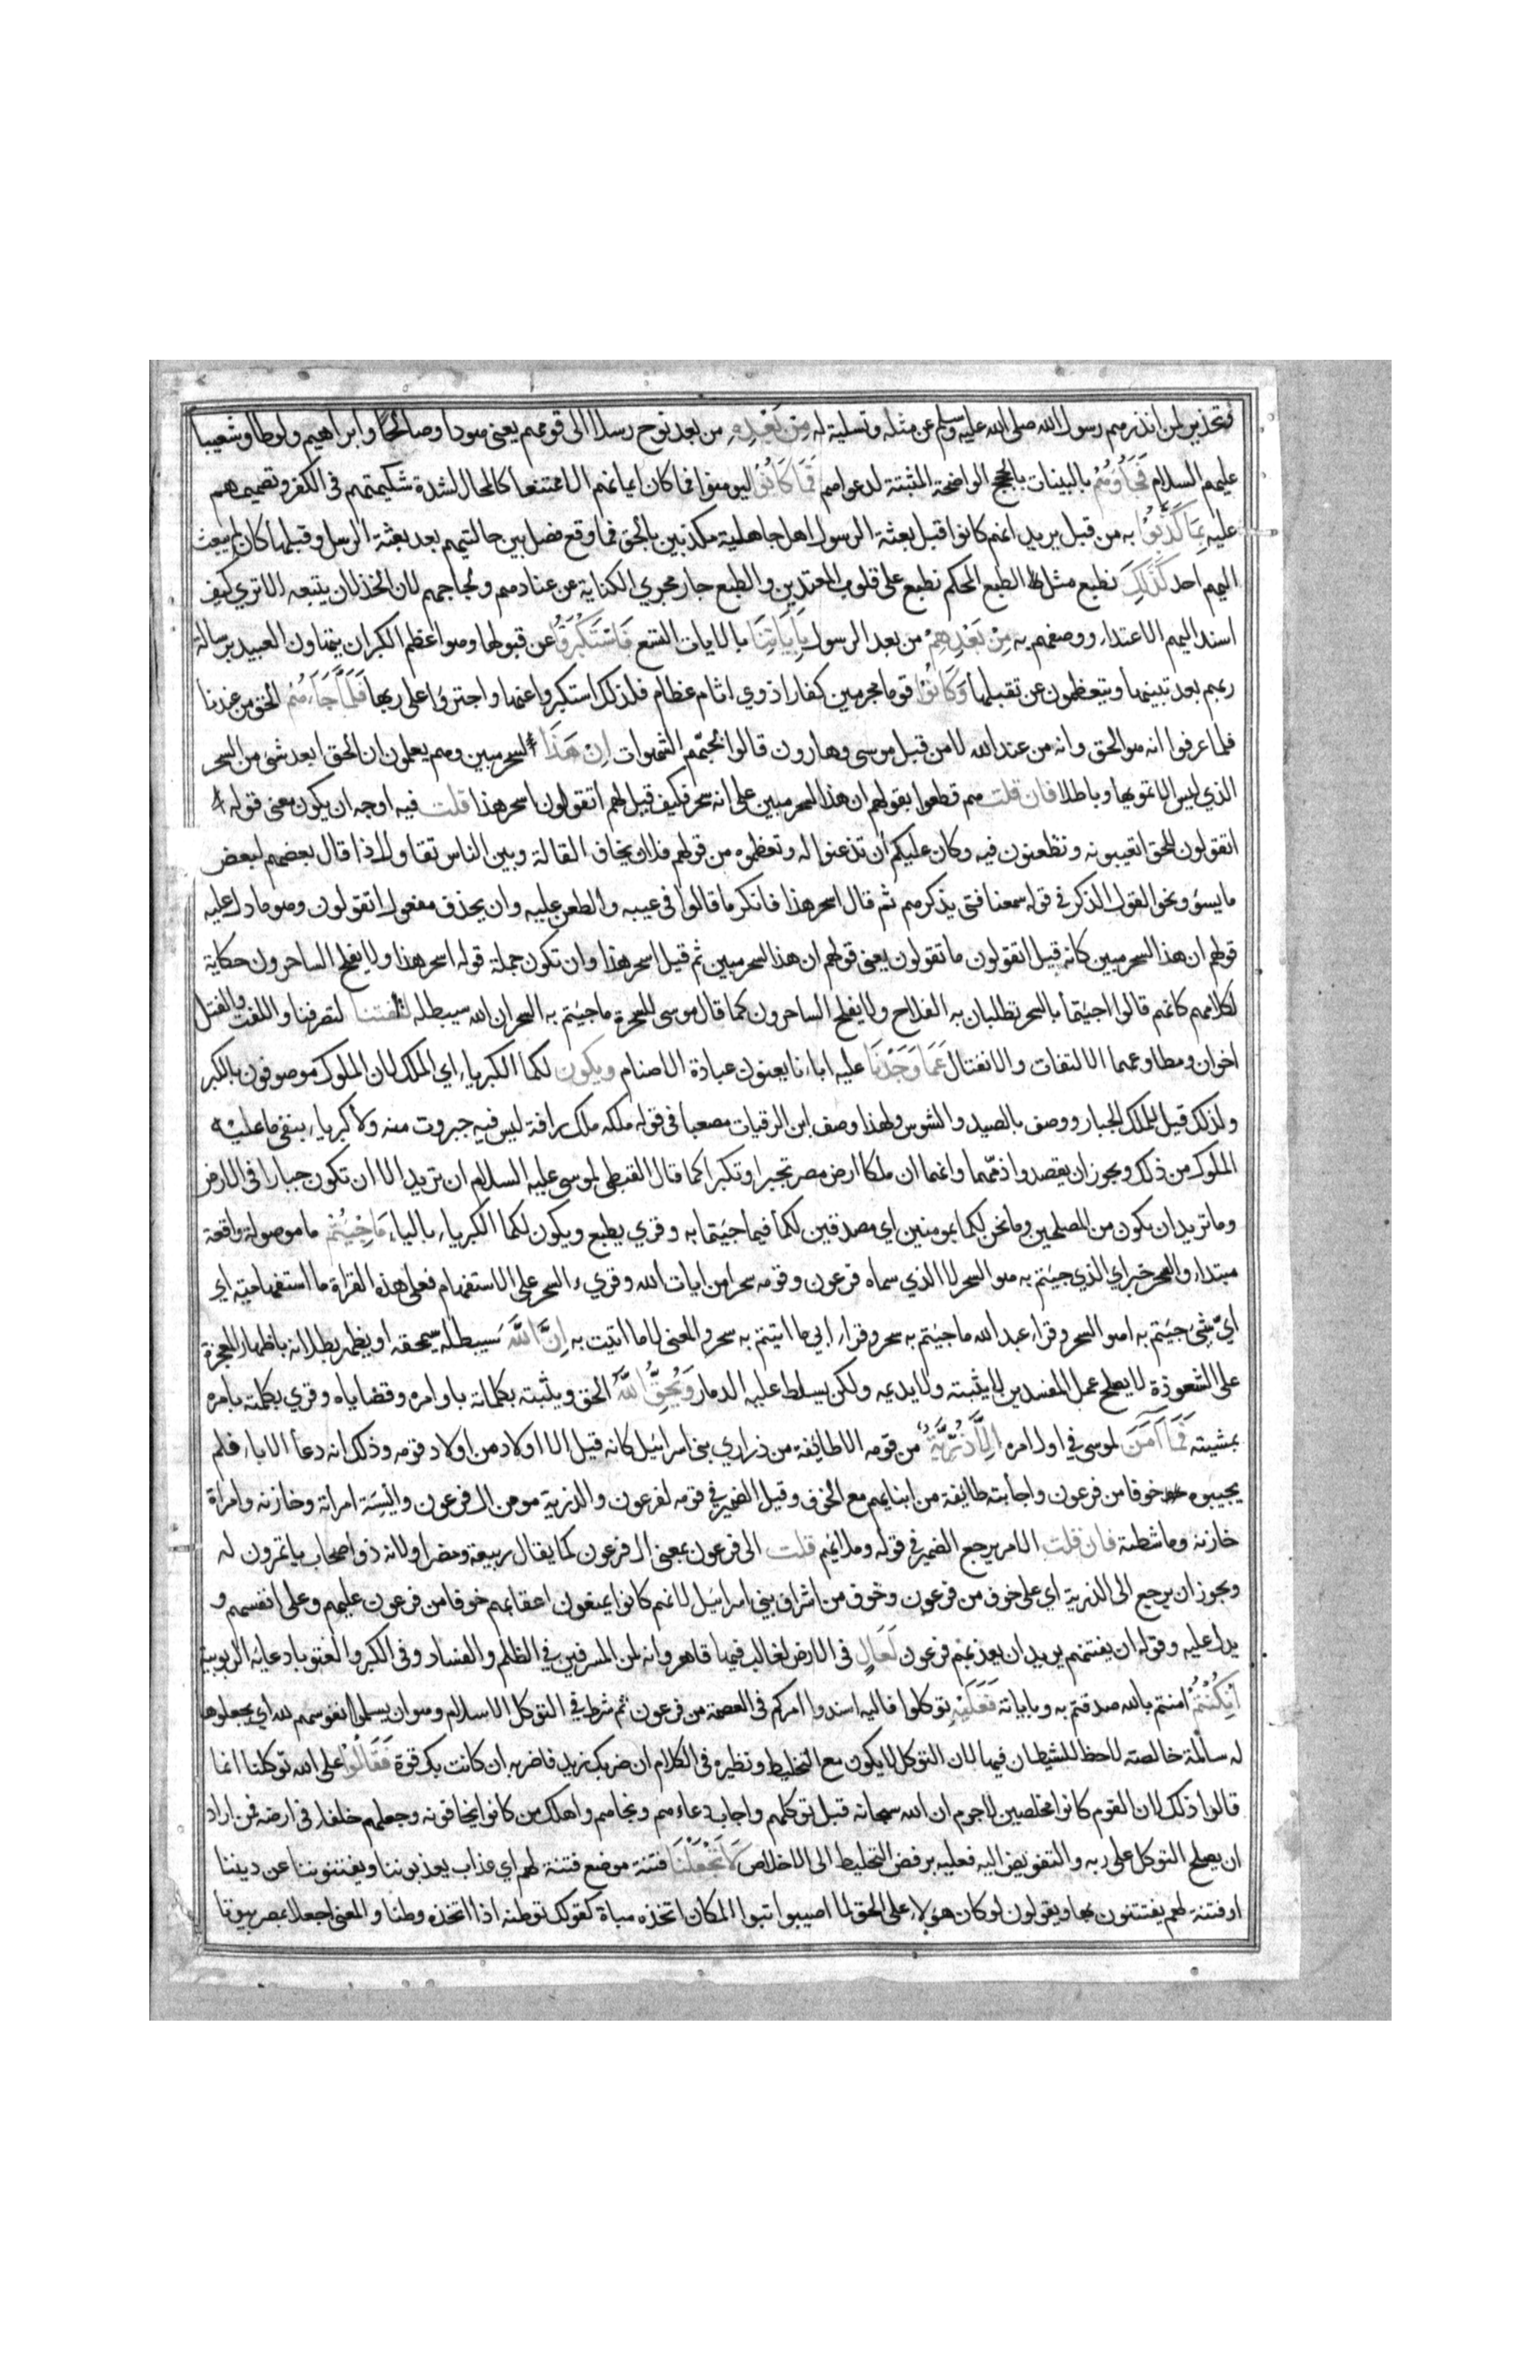 وتحذير لمن انذرهم رسول الله صلى الله عليه وسلم عن مثله وتسلية له مِنْ بَعْدِهِ من بعد نوح رسلا الى قومهم يعنى هودا وصالحا وابراهيم ولوطا وشعيبا
عليهم السلام فَجَاؤُهُمْ بالبينات بالحجج الواضحة المثبتة لدعواهم فَمَا كَانُوا ليومنوا فما كان ايمانهم الا ممتنعا كالمحال لشدة شكيمتهم فى الكفر وتصميمهم
عليه بِمَا كَذَّبُوْا به من قبل يريد انهم كانوا قبل بعثة الرسول اهل جاهلية مكذبين بالحق فما وقع فصل بين حالتيهم بعد بعثة الرسل وقبلها كان لم يبعث
اليهم احد كَذٰلِكَ نطبع مثل ذلك الطبع المحكم نطبع على قلوب المعتدين والطبع جار مجري الكناية عن عنادهم ولجاجهم لان الخذلان يتبعه الا تري كيف
اسند اليهم الاعتداء ووصفهم به مِنْ بَعْدِهِمْ من بعد الرسول بِاٰيَاتِنَا بالايات التسع فَاسْتَكْبَرُوْا عن قبولها وهو اعظم الكبر ان يتهاون العبيد برسالة
ربهم بعد تبينها ويتعظمون عن تقبلها وَكَانُوْا قوما مجرمين كفارا ذوي اثام عظام فلذلك استكبروا عنها واجترؤا على ردها فَلَمَّا جَاءَهُمْ الحق من عندنا
فلما عرفوا انه هو الحق وانه من عند الله لا من قبل موسى وهارون قالوا لحبّهم الشهوات اِنَّ هَذَا لسحر مبين وهم يعلمون ان الحق ابعد شئ من السحر
الذي ليس الا تمويها وباطلا فان قلت هم قطعوا بقولهم ان هذا لسحر مبين على انه سحر فكيف قيل لهم اتقولون اسحر هذا قلت فيه اوجه ان يكون معنى قوله
اتقولون للحق اتعيبونه وتطعنون فيه وكان عليكم ان تذعنوا له وتعظموه من قولهم فلان يخاف القالة وبين الناس تقاول اذا قال بعضهم لبعض
ما يسؤ ونحو القول الذكر فى قوله سمعنا فتى يذكرهم ثم قال اسحر هذا فانكر ما قالوا فى عيبه والطعن عليه وان يحذف مفعول اتقولون وهو ما دل عليه
قولهم ان هذا لسحر مبين كانه قيل اتقولون ما تقولون يعنى قولهم ان هذا لسحر مبين ثم قيل اسحر هذا وان تكون جملة قوله اسحر هذا ولا يفلح الساحرون حكاية
لكلامهم كانهم قالوا اجيتما بالسحر تطلبان به الفلاح ولا يفلح الساحرون كما قال موسى للسحرة ما جيتم به السحر ان الله سيبطله لتلفتنا لتصرفنا واللفت والفتل
اخوان ومطاوعهما الالتفات والانفتال عَمَّا وَجَدْنَا عليه اباءنا يعنون عبادة الاصنام ويكون لكما الكبرياء اي الملك لان الملوك موصوفون بالكبر
ولذلك قيل للملك الجبار ووصف بالصيد والشوس ولهذا وصف ابن الرقيات مصعبا فى قوله ملكه ملك رافة ليس فيه جبروت منه ولا كبرياء ينفى ما عليه
الملوك من ذلك ويجوز ان يقصدوا ذمّهما وانهما ان ملكا ارض مصر تجبرا وتكبرا كما قال القبطى لموسى عليه السلام ان تريد الا ان تكون جبارا فى الارض
وما تريد ان تكون من المصلحين وما نحن لكما بمومنين اي مصدقين لكما فيما جيتما به وقري يطبع ويكون لكما الكبرياء بالياء مَا جِئْتُمْ ما موصولة واقعة
مبتداء والسحر خبر اي الذي جيتم به هو السحر لا الذي سماه فرعون وقومه سحرا من ايات الله وقريء السحر على الاستفهام فعلى هذه القراة ما استفهامية اي
ايّ شئ جيتم به اهو السحر وقراء عبد الله ما جيتم به سحر وقراء ابي ما اتيتم به سحر والمعنى لا ما اتيت به اِنَّ اللّٰهَ سيبطله سيمحقه او يظهر بطلانه باظهار المعجزة
على الشعوذة لا يصلح عمل المفسدين لا يثبته ولا يديمه ولكن يسلط عليه الدمار وَيُحِقُّ اللّٰهُ الحق ويثبته بكلماته باوامره وقضاياه وقري بكلمته بامره
بمشيته فَمَا اٰمَنَ لموسى في اول امره اِلَّا ذُرِّيَّةٌ من قومه الا طائفة من ذراري بنى اسرائيل كانه قيل الا اولاد من اولاد قومه وذلك انه دعا الاباء فلم
يجيبوه خوفا من فرعون واجابته طائفة من ابنايهم مع الخوف وقيل الضمير في قومه لفرعون والذرية مومن ال فرعون واسية امراته وخازنه وامراة
خازنه وماشطته فان قلت الام يرجع الضمير في قوله وملائهم قلت الى فرعون بمعنى ال فرعون كما يقال ربيعة ومضر او لانه ذو اصحاب ياتمرون له
ويجوز ان يرجع الى الذرية اي على خوف من فرعون وخوف من اشراف بنى اسرائيل لانهم كانوا يمنعون اعقابهم خوفا من فرعون عليهم وعلى انفسهم و
يدل عليه وقوله ان يفتنهم يريد ان يعذبهم فرعون لَعَالٍ فى الارض لغالب فيها قاهر وانه لمن المسرفين في الظلم والفساد وفى الكبر والعتو بادعايه الربوبية
اِنْ كُنْتُمْ امنتم بالله صدقتم به وباياته فَعَلَيْهِ توكلوا فاليه اسندوا امركم فى العصمة من فرعون ثم شرط في التوكل الاسلام وهو ان يسلموا نفوسهم لله اي يجعلوها
له سالمة خالصة لاحظ للشيطان فيها لان التوكل لا يكون مع التخليط ونظيره فى الكلام ان ضربك زيد فاضربه ان كانت بك قوة فَقَالُوْا على الله توكلنا انما
قالوا ذلك لان القوم كانوا مخلصين لاجرم ان الله سبحانه قبل توكلهم واجاب دعاءهم ونجاهم واهلك من كانوا يخافونه وجعلهم خلفاء فى ارضه فمن اراد
ان يصلح التوكل على ربه والتفويض اليه فعليه برفض التخليط الى الاخلاص لَا تَجْعَلْنَا فتنة موضع فتنة لهم اي عذاب يعذبوننا ويفتنوننا عن ديننا
او فتنة لهم يفتتنون بها ويقولون لو كان هؤلاء على الحق لما اصيبوا تبوا المكان اتخذه مباة كقولك توطنه اذا اتخذه وطنا والمعنى اجعلا بمصر بيوتا